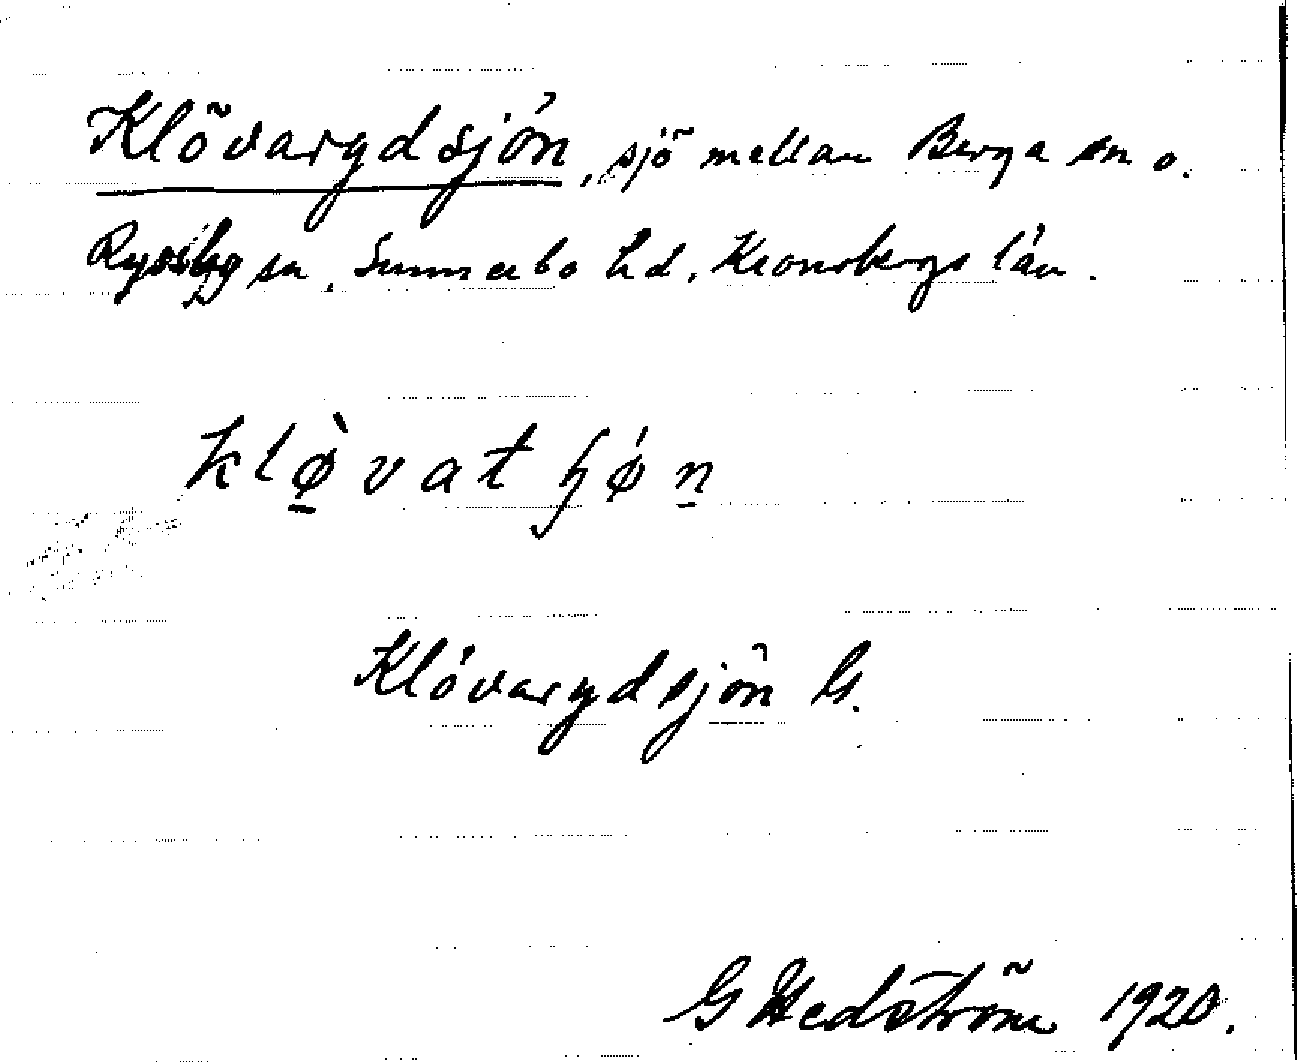 Klövarydsjön, sjö mellan Berga sn o.
Ryssby sn, Sunnerbo hd, Kronobergs län.
klø̀vatɧǿn
Klövarydsjön G.
G Hedström 1920.